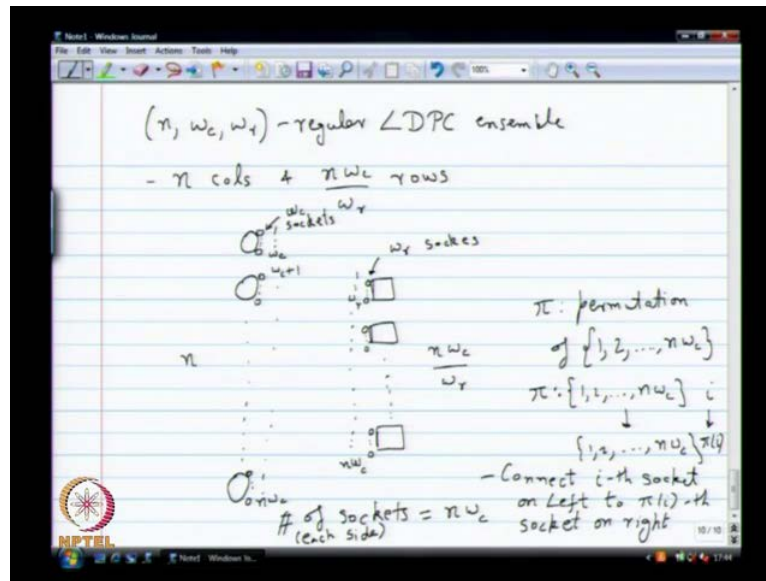 Note1 - Windows Journal
File Edit View Insert Actions Tools Help
100%
(n, w_c, w_r) - regular LDPC ensemble
- n cols & n w_c / w_r rows
w_c sockets
w_c
w_c+1
w_r sockes
1
w_r
n
n w_c / w_r
n w_c
n w_c
# of sockets = n w_c
(each side)
π : permutation
of {1, 2, ..., n w_c}
π : {1, 2, ..., n w_c} i
↓ ↓
{1, 2, ..., n w_c} π(i)
- Connect i-th socket
on Left to π(i)-th
socket on right
10 / 10
NPTEL
Note1 - Windows Jo...
17:44